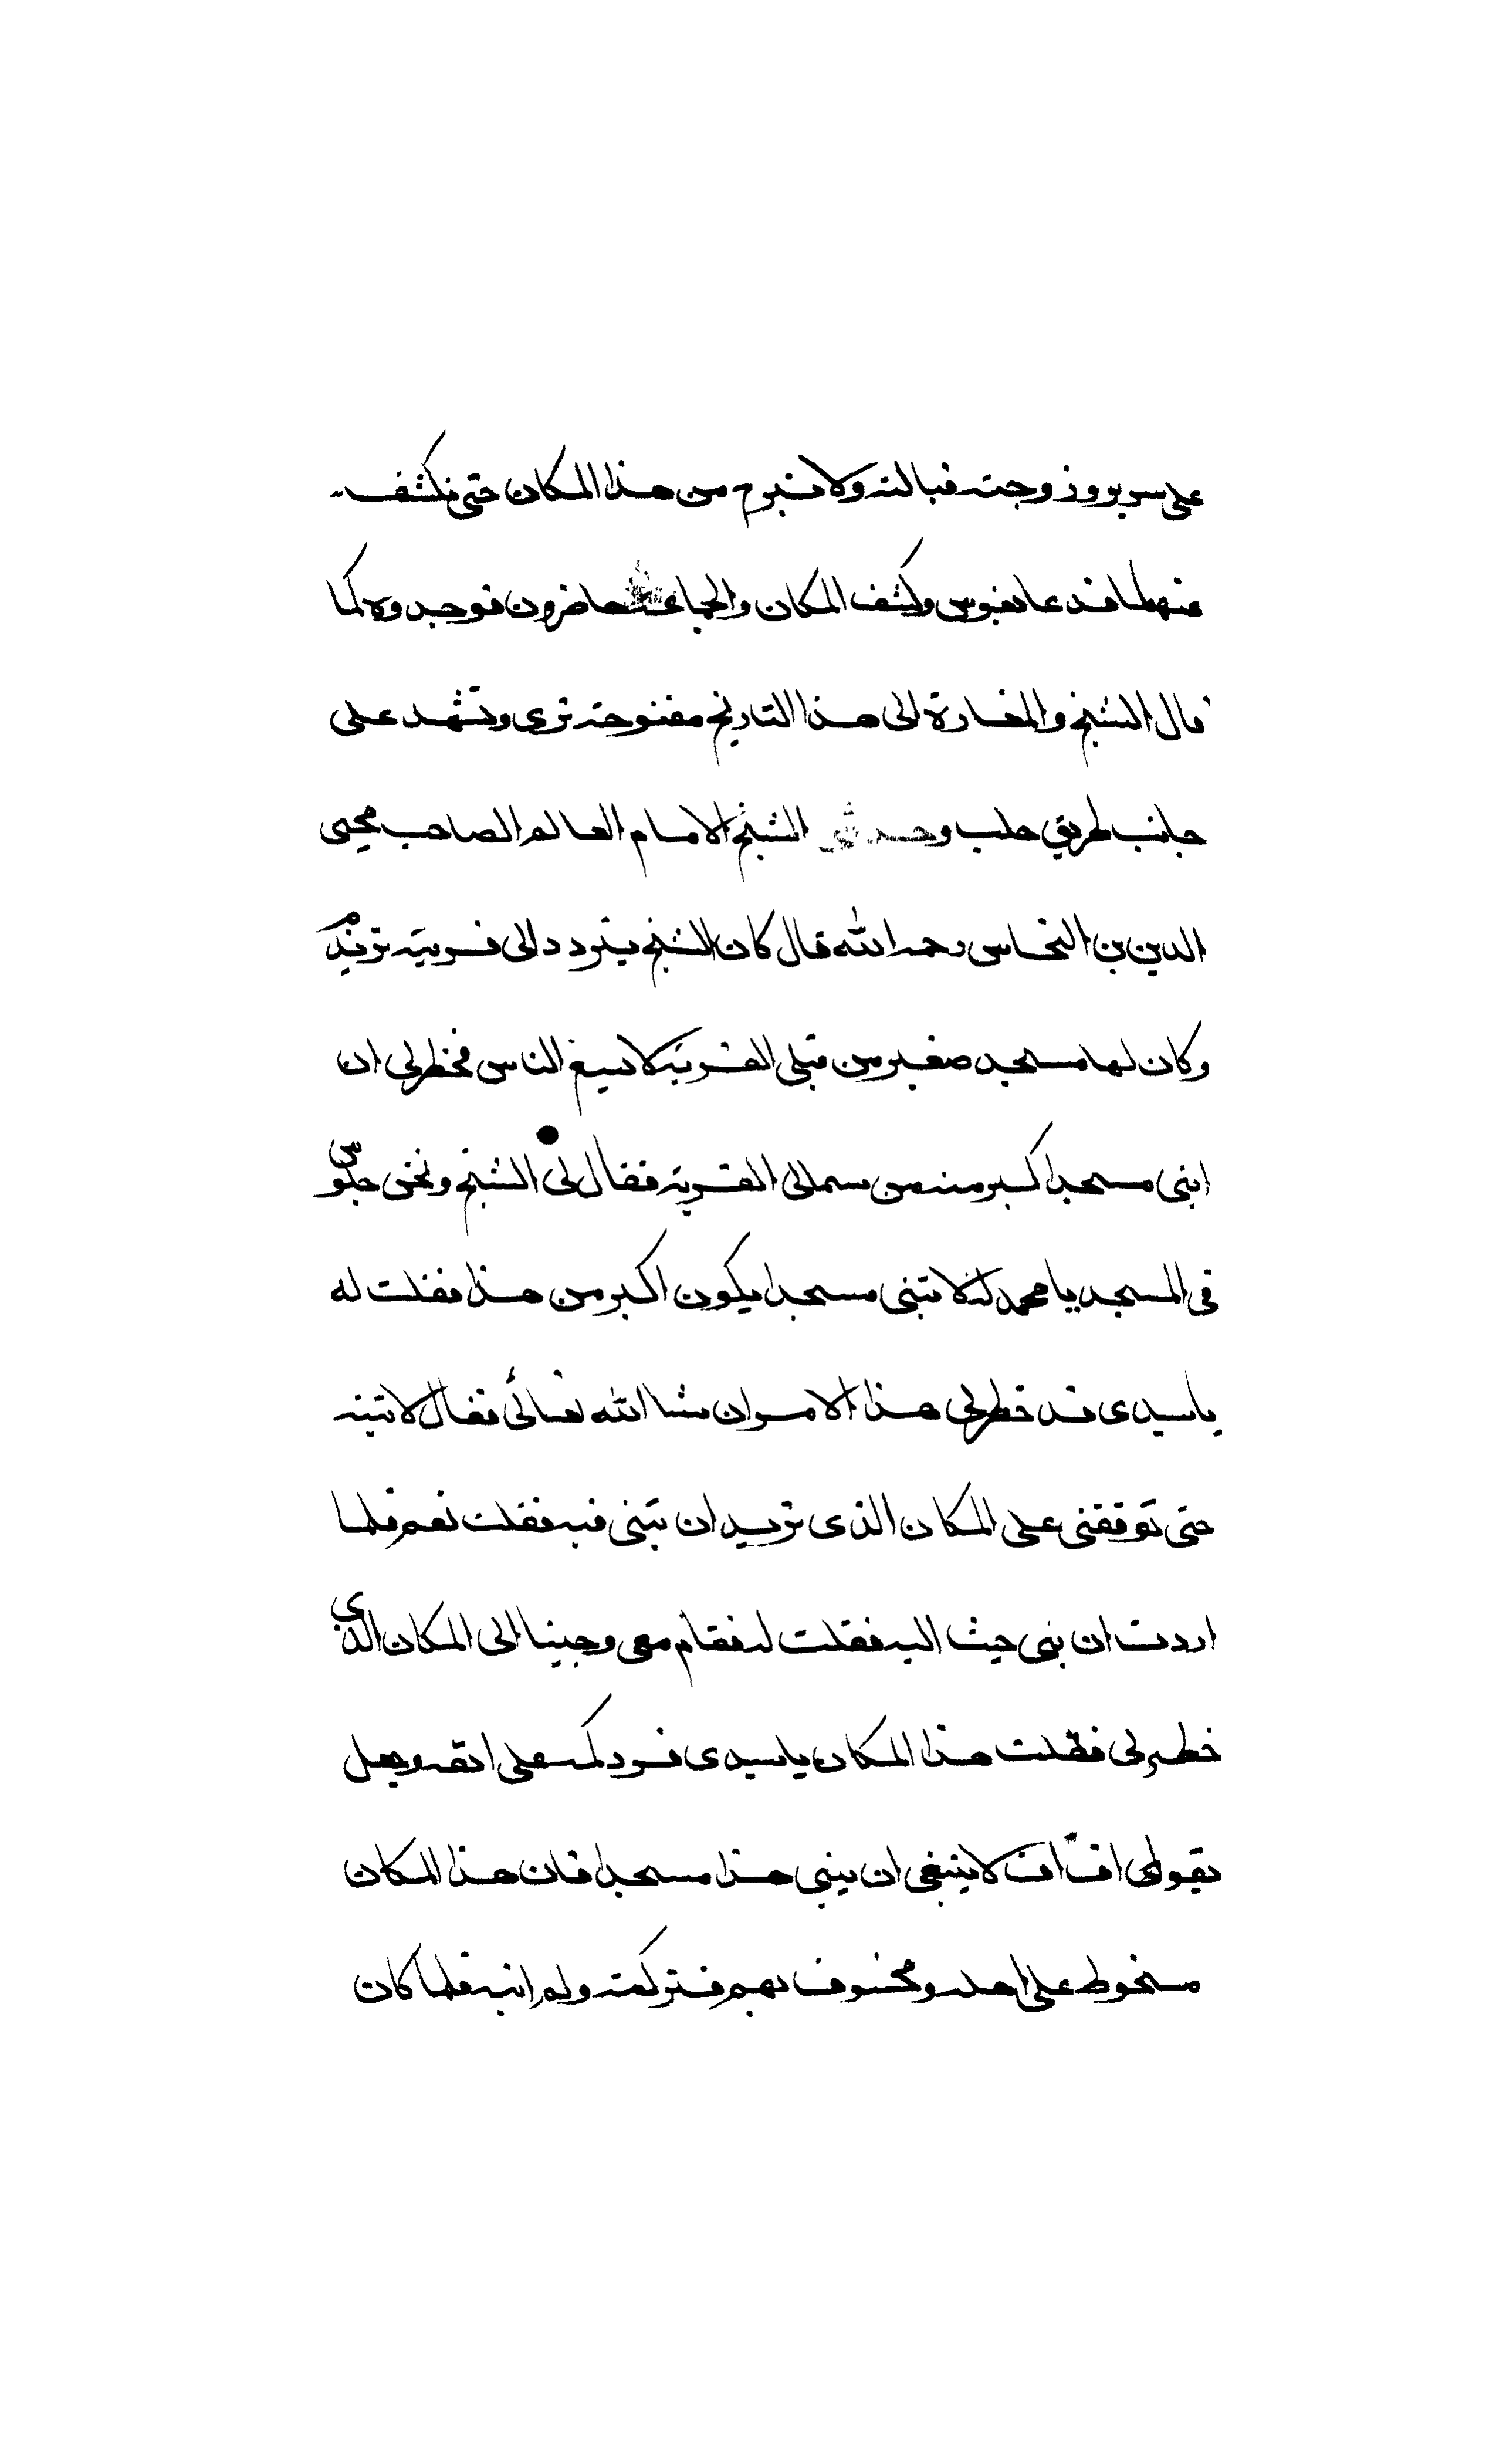 على سرير وزوجته قبالته ولا نبرح من هذا المكان حتى نكشف
عنهما فدعا بفوس وكشف المكان والجماعة حاضرون فوجدوه كما
قال الشيخ والمغارة الى هذا التاريخ مفتوحة ترى وتشهد على
جانب طريق حلب وحدثنى الشيخ الامام العالم الصاحب محيى
الدين بن النحاس رحمه الله قال كان الشيخ يتردد الى قرية تريذم
وكان لها مسجد صغير من قبلى القرية لا يسع الناس فخطر لى ان
ابنى مسجدا كبر منه من سمالى القرية فقال لى الشيخ ونحن جلوس
فى المسجد يا محمد لم لا تبنى مسجدا يكون اكبر من هذا فقلت له
ياسيدى قد خطر لى هذا الامر ان شا الله تعالى فقال لا تبنه
حتى توقفنى على المكان الذى تريد ان تبنى فيه فقلت نعم فلما
اردت ان بنى جيت اليه فقلت له فقام معى وجينا الى المكان الذي
خطر لى فقلت هذا المكان ياسيدى فرد كمه على انفه وجعل
يقول اف اف لا ينبغى ان يبنى هذا مسجدا فان هذا المكان
مسخوط على اهله ومخسوف بهم فتركته ولم ابنه فلما كان